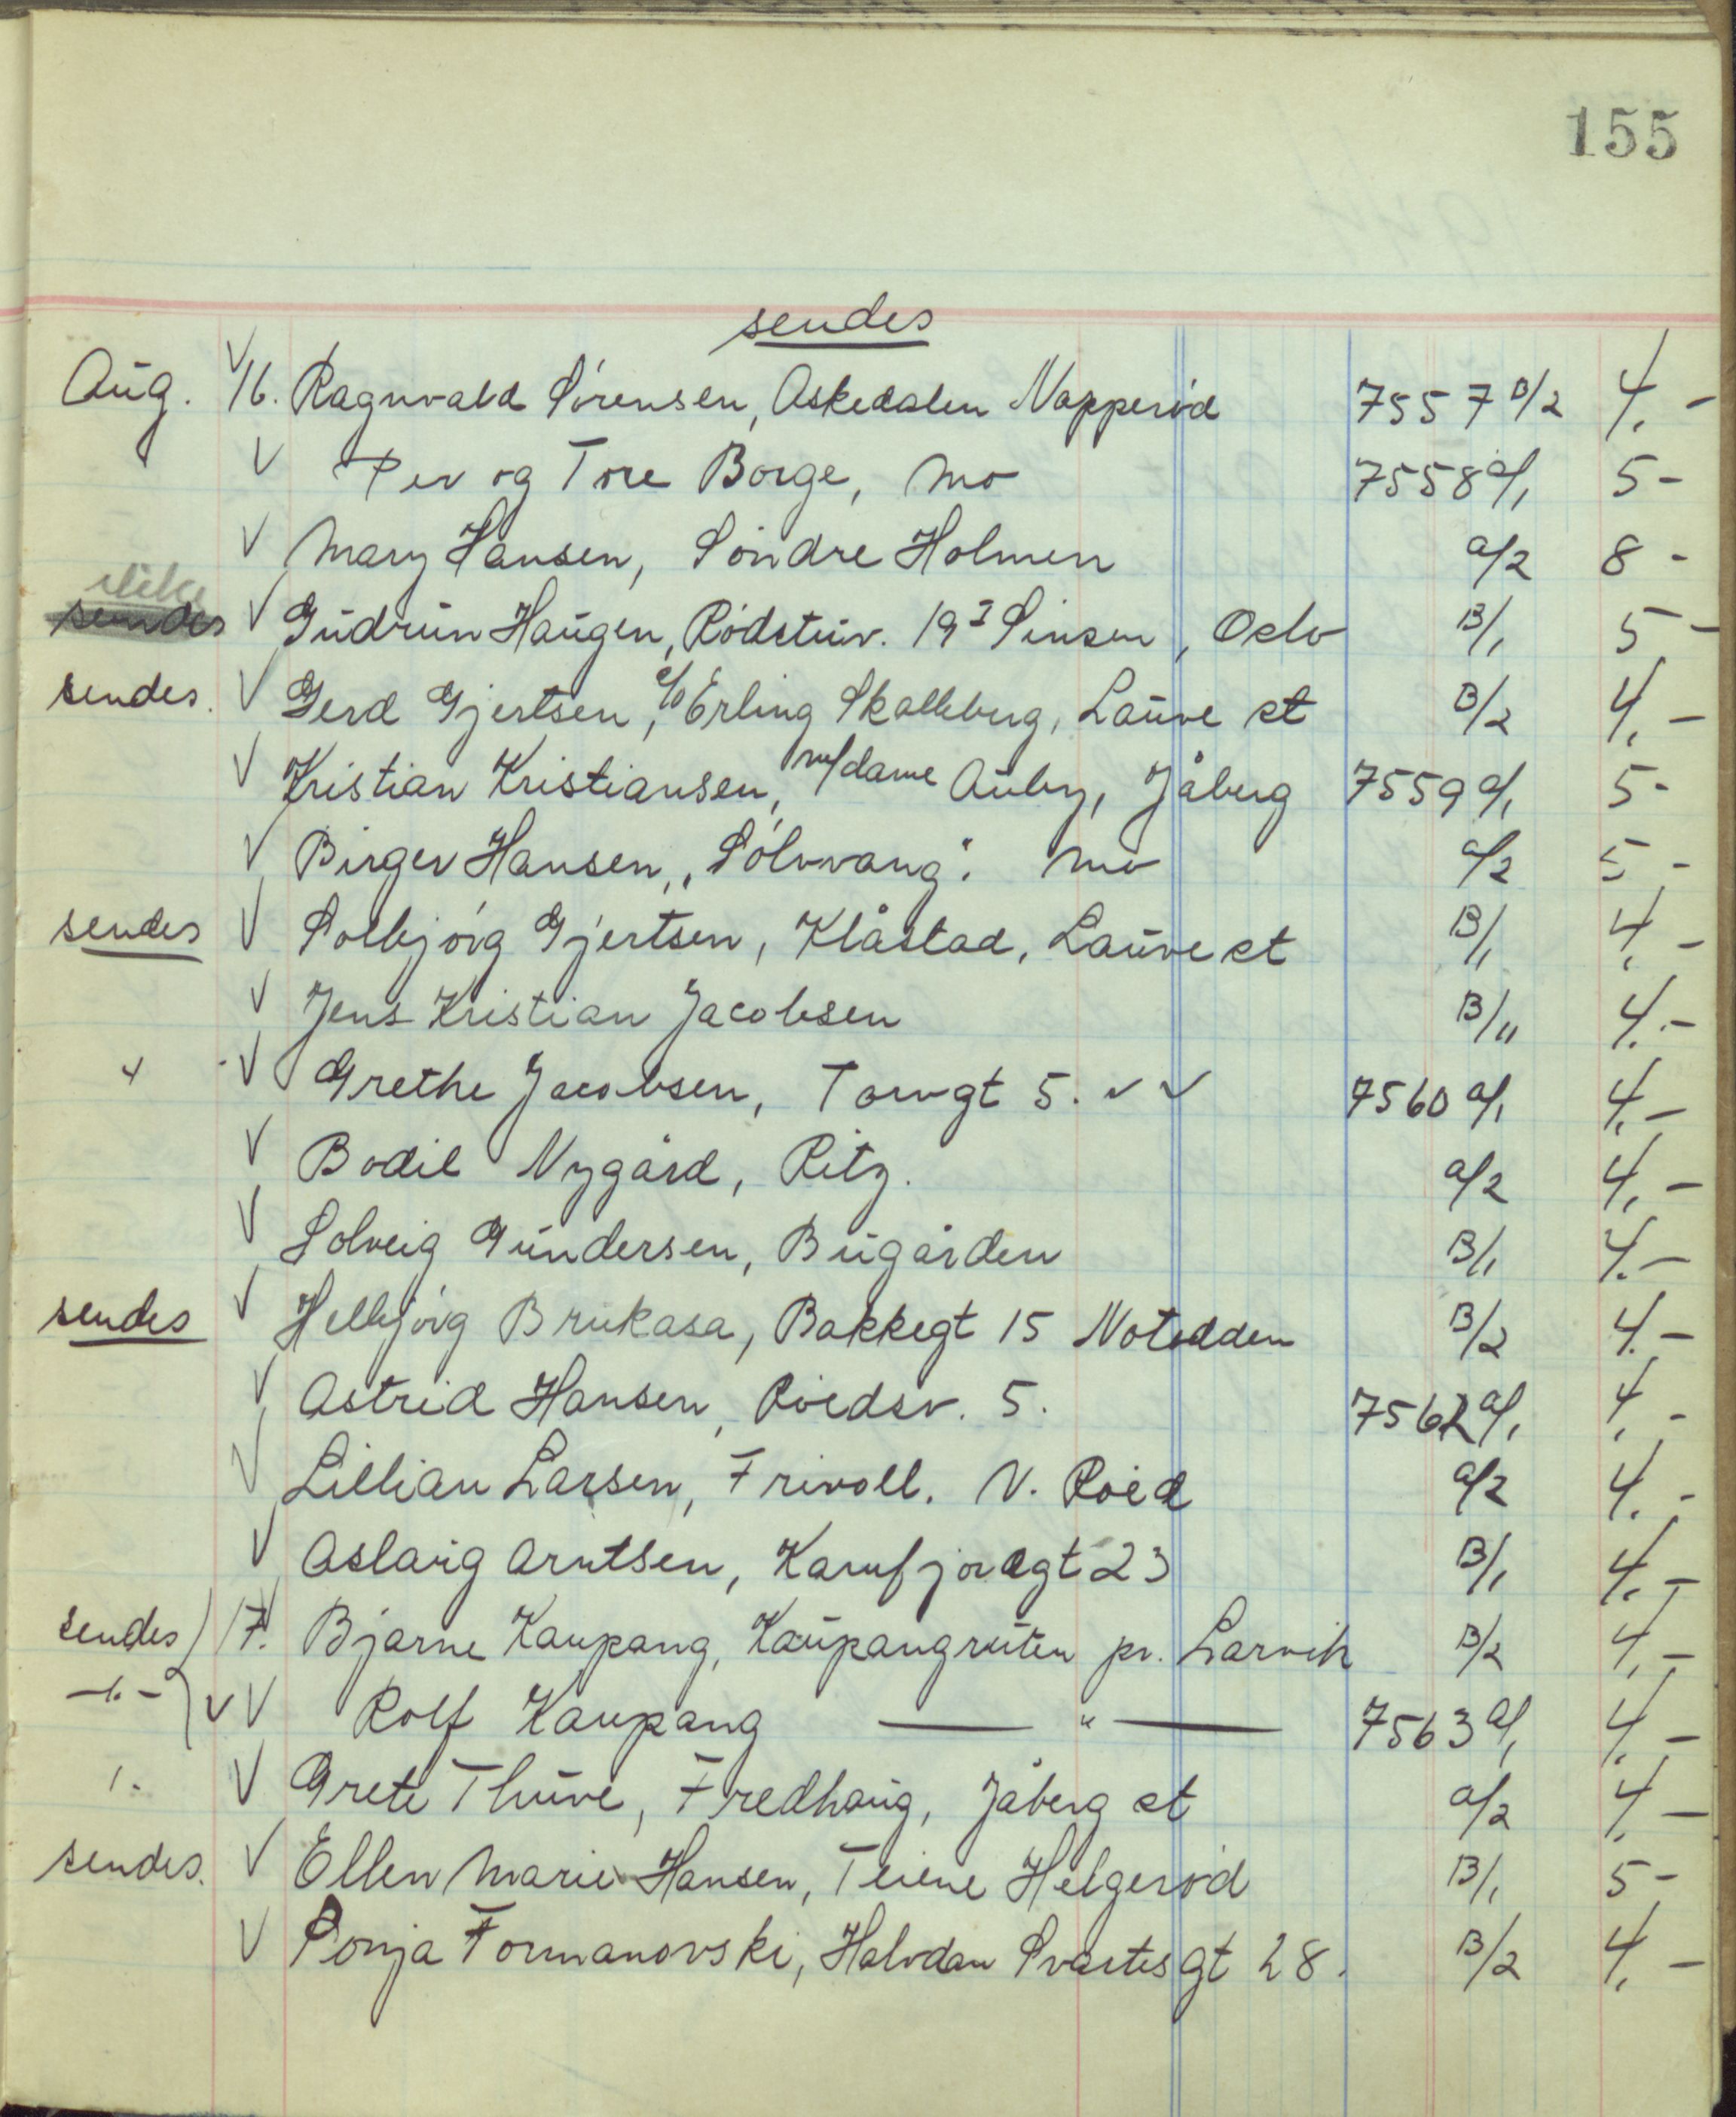 155
sendes
Aug. 16. Ragnvald Sørensen, Askedalen Napperød 7557 B/2 4,-
Per og Tore Borge, Mo 7558 a/1 5-
Mary Hansen, Søndre Holmen a/2 8-
ikke
sendes Gudrun Haugen, Rødstuv. 19 I Sinsen, Oslo B/1 5-
sendes. Gerd Gjertsen, c/o Erling Skalleberg, Lauve st B/2 4,-
Kristian Kristiansen, m/dame Auby, Jåberg 7559 a/1 5-
Birger Hansen, "Sølvvang". Mo a/2 5-
sendes Solbjørg Gjertsen, Klåstad, Lauve st B/1 4,-
Jens Kristian Jacobsen B/11 4.-
Grethe Jacobsen, Torvgt 5. 7560 a/1 4,-
Bodil Nygård, Ritz. a/2 4,-
Solveig Gundersen, Bugården B/1 4.-
sendes Helbjørg Brukasa, Bakkegt 15 Notodden B/2 4.-
Astrid Hansen, Røedsv. 5. 7562 a/1 4,-
Lillian Larsen, Frivoll. N. Røed a/2 4.-
Aslaug Arntsen, Kamfjordgt 23 B/1 4.-
sendes 17. Bjarne Kaupang, Kaupangruten pr. Larvik B/2 4,-
-"- Rolf Kaupang — " — 7563 a/1 4,-
Grete Thuve, Fredhaug, Jåberg st a/2 4,-
sendes. Ellen Marie Hansen, Teiene Helgerød B/1 5-
Sonja Formanovski, Halvdan Svartes gt 28. B/2 4,-